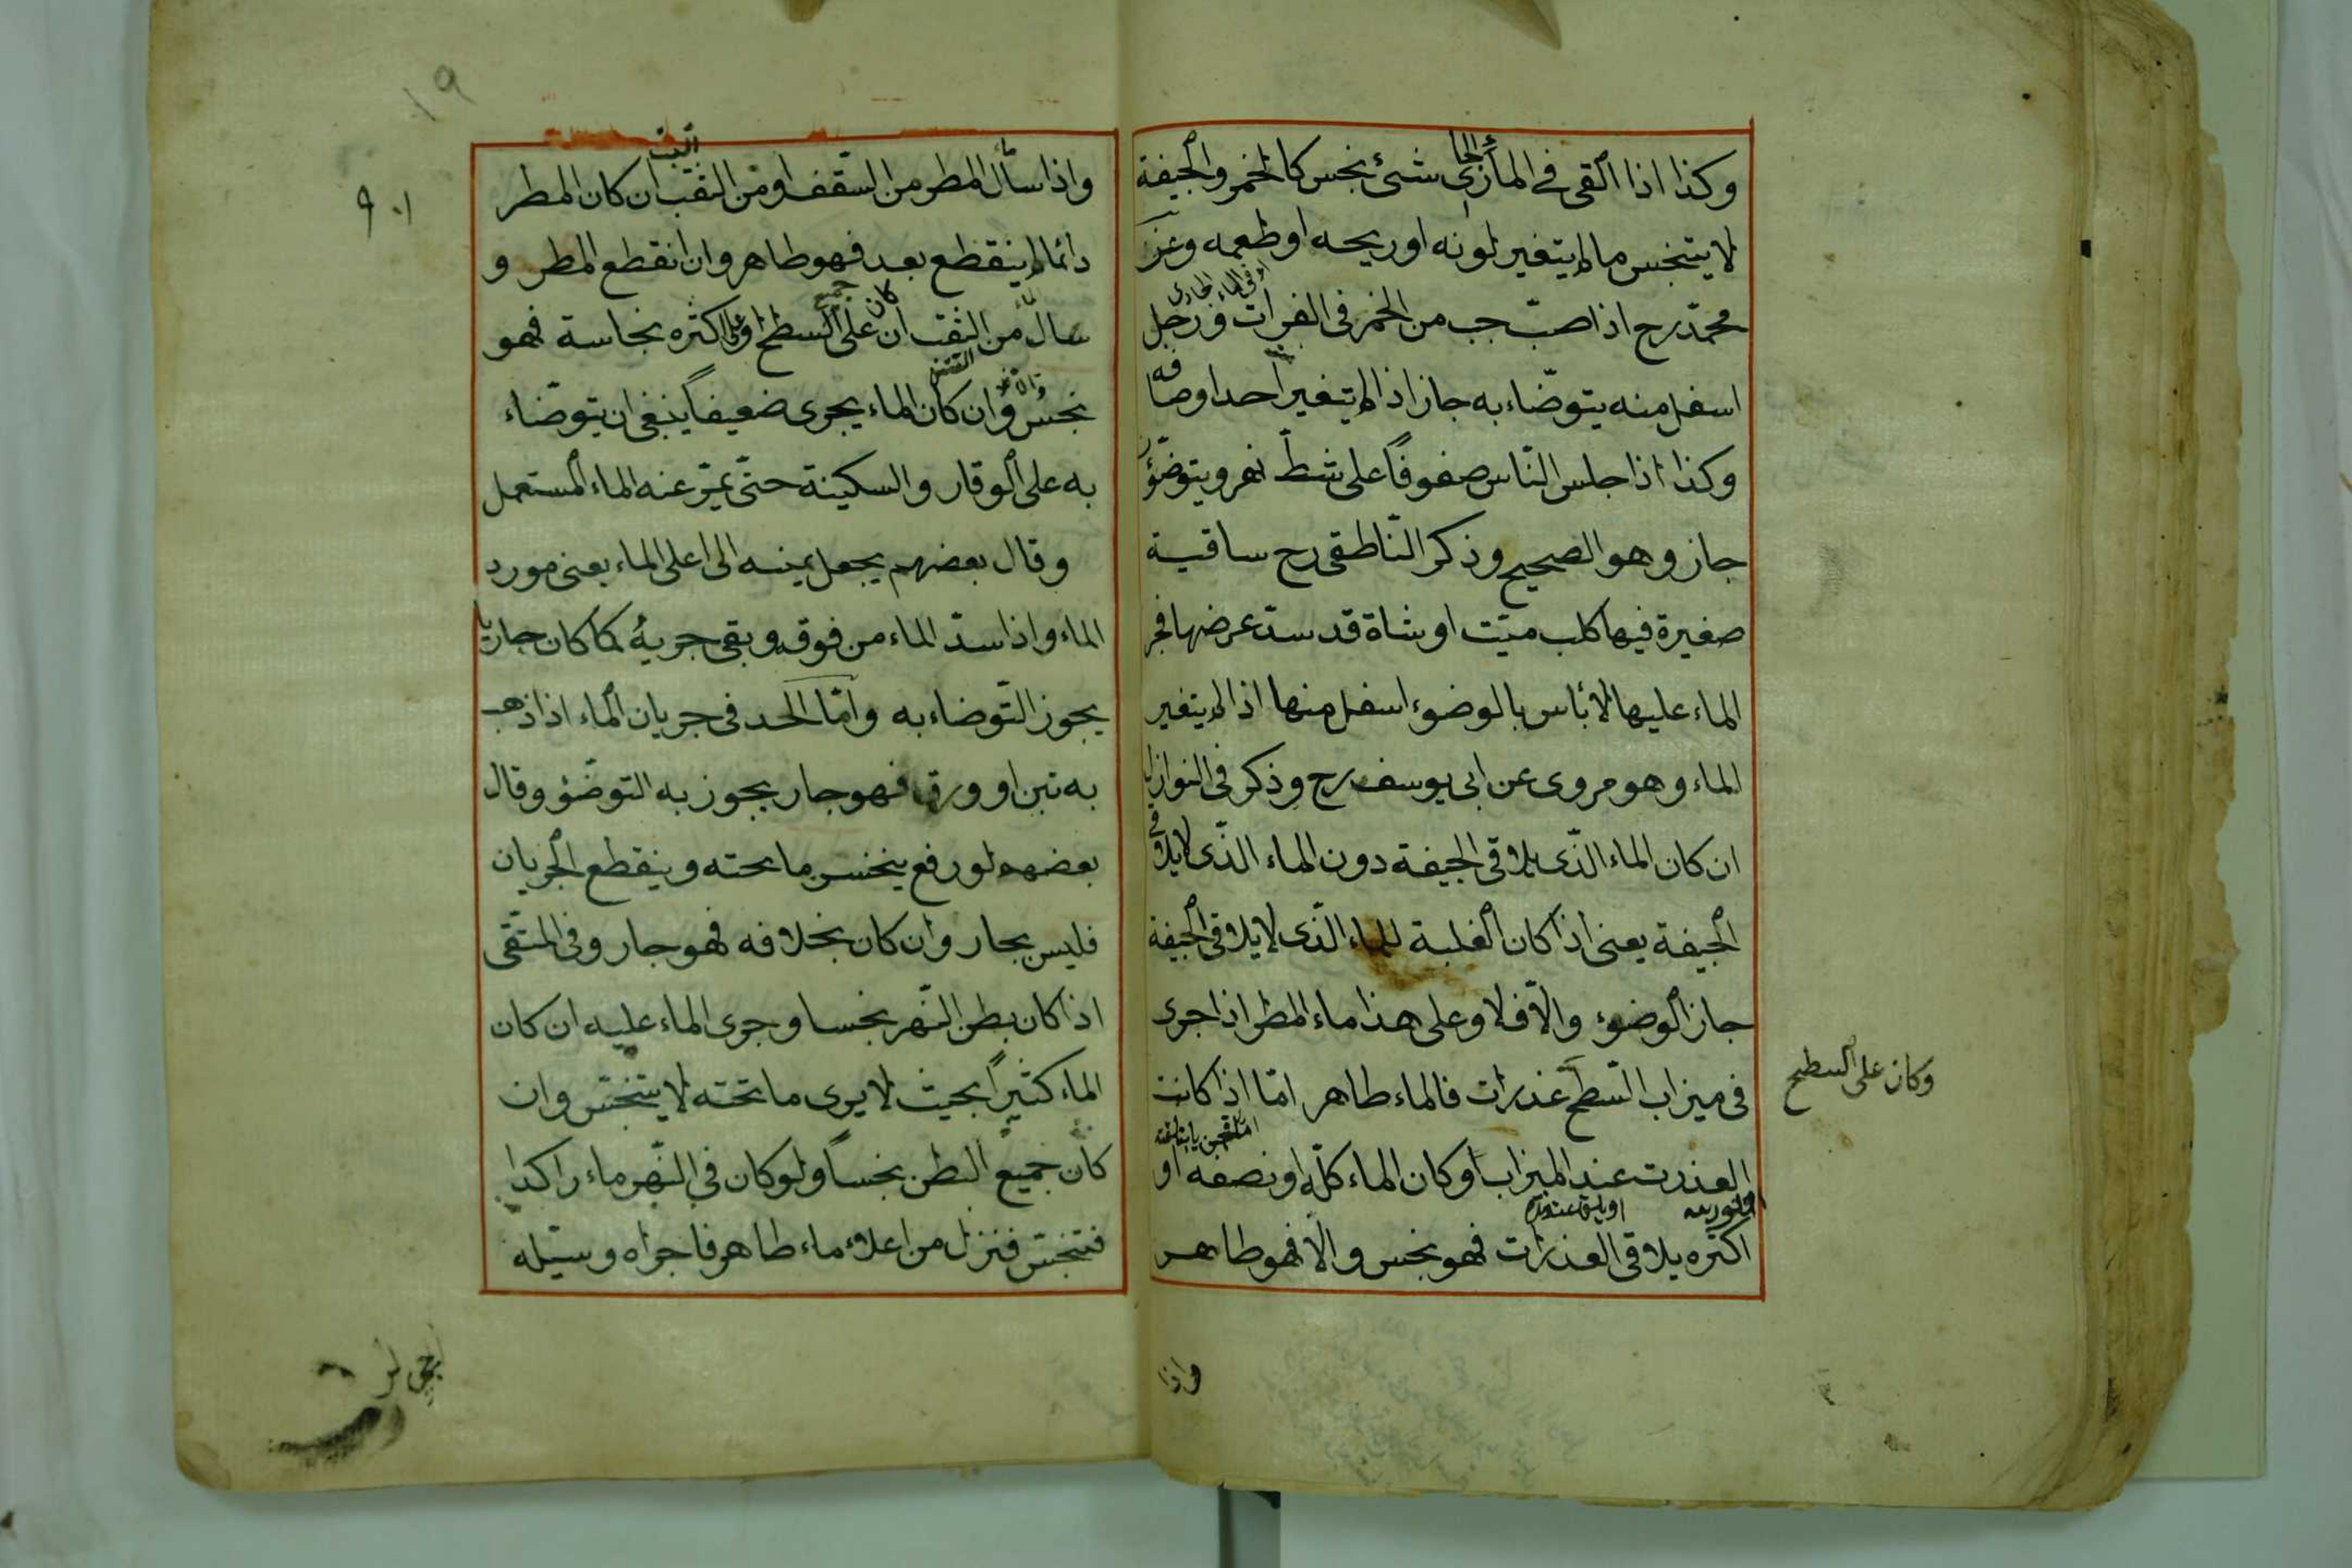 وكذا اذا القى فى الماء الجارى شئ نجس كالخمر والجيفة
لا يتنجس ما لم يتغير لونه او ريحه او طعمه وعن
محمد رح اذا صب جب من الخمر فى الفرات ورجل
او فى الماء الجارى
اسفل منه يتوضاء به جاز اذا لم يتغير احد اوصافه
وكذا اذا جلس الناس صفوفاً على شط نهر ويتوضؤن
جاز وهو الصحيح وذكر الناطقى رح ساقية
صغيرة فيها كلب ميت او شاة قد سد عرضها فجر
الماء عليها لا بأس بالوضوء اسفل منها اذا لم يتغير
الماء وهو مروى عن ابى يوسف رح وذكر فى النوازل
ان كان الماء الذى يلاقى الجيفة دون الماء الذى لا يلاقى
الجيفة يعنى اذا كان الغلبة للماء الذى لا يلاقى الجيفة
جاز الوضوء والا فلا وعلى هذا ماء المطر اذا جرى
فى ميزاب السطح عذرات فالماء طاهر اما اذا كانت
وكان على السطح
العذرت عند الميزاب او كان الماء كله او نصفه او
اكثره يلاقى العذرات فهو نجس والا فهو طاهر
واذا
١٩
٩٠١
واذا سأل المطر من السقف او من الثقب ان كان المطر
البيت
دائما لم ينقطع بعد فهو طاهر وان انقطع المطر و
سال من الثقب ان كان على جميع السطح او على اكثره نجاسة فهو
نجس وان كان الماء يجرى ضعيفاً ينبغى ان يتوضاء
به على الوقار والسكينة حتى يمر عنه الماء المستعمل
وقال بعضهم يجعل يمينه الى اعلى الماء يعنى مورد
الماء واذا سد الماء من فوقه وبقى جريه كما كان جاريا
يجوز التوضاء به واما الحد فى جريان الماء اذا ذهب
به تبن او ورق فهو جار يجوز به التوضؤ وقال
بعضهم لو رفع ينخسر ما تحته وينقطع الجريان
فليس بجار وان كان بخلافه فهو جار وفى المنتقى
اذا كان بطن النهر نجسا وجرى الماء عليه ان كان
الماء كثيراً بحيث لا يرى ما تحته لا يتنجس وان
كان جميع البطن نجساً ولو كان فى النهر ماء راكدا
فتنجس فنزل من اعلاه ماء طاهر فاجراه وسيله